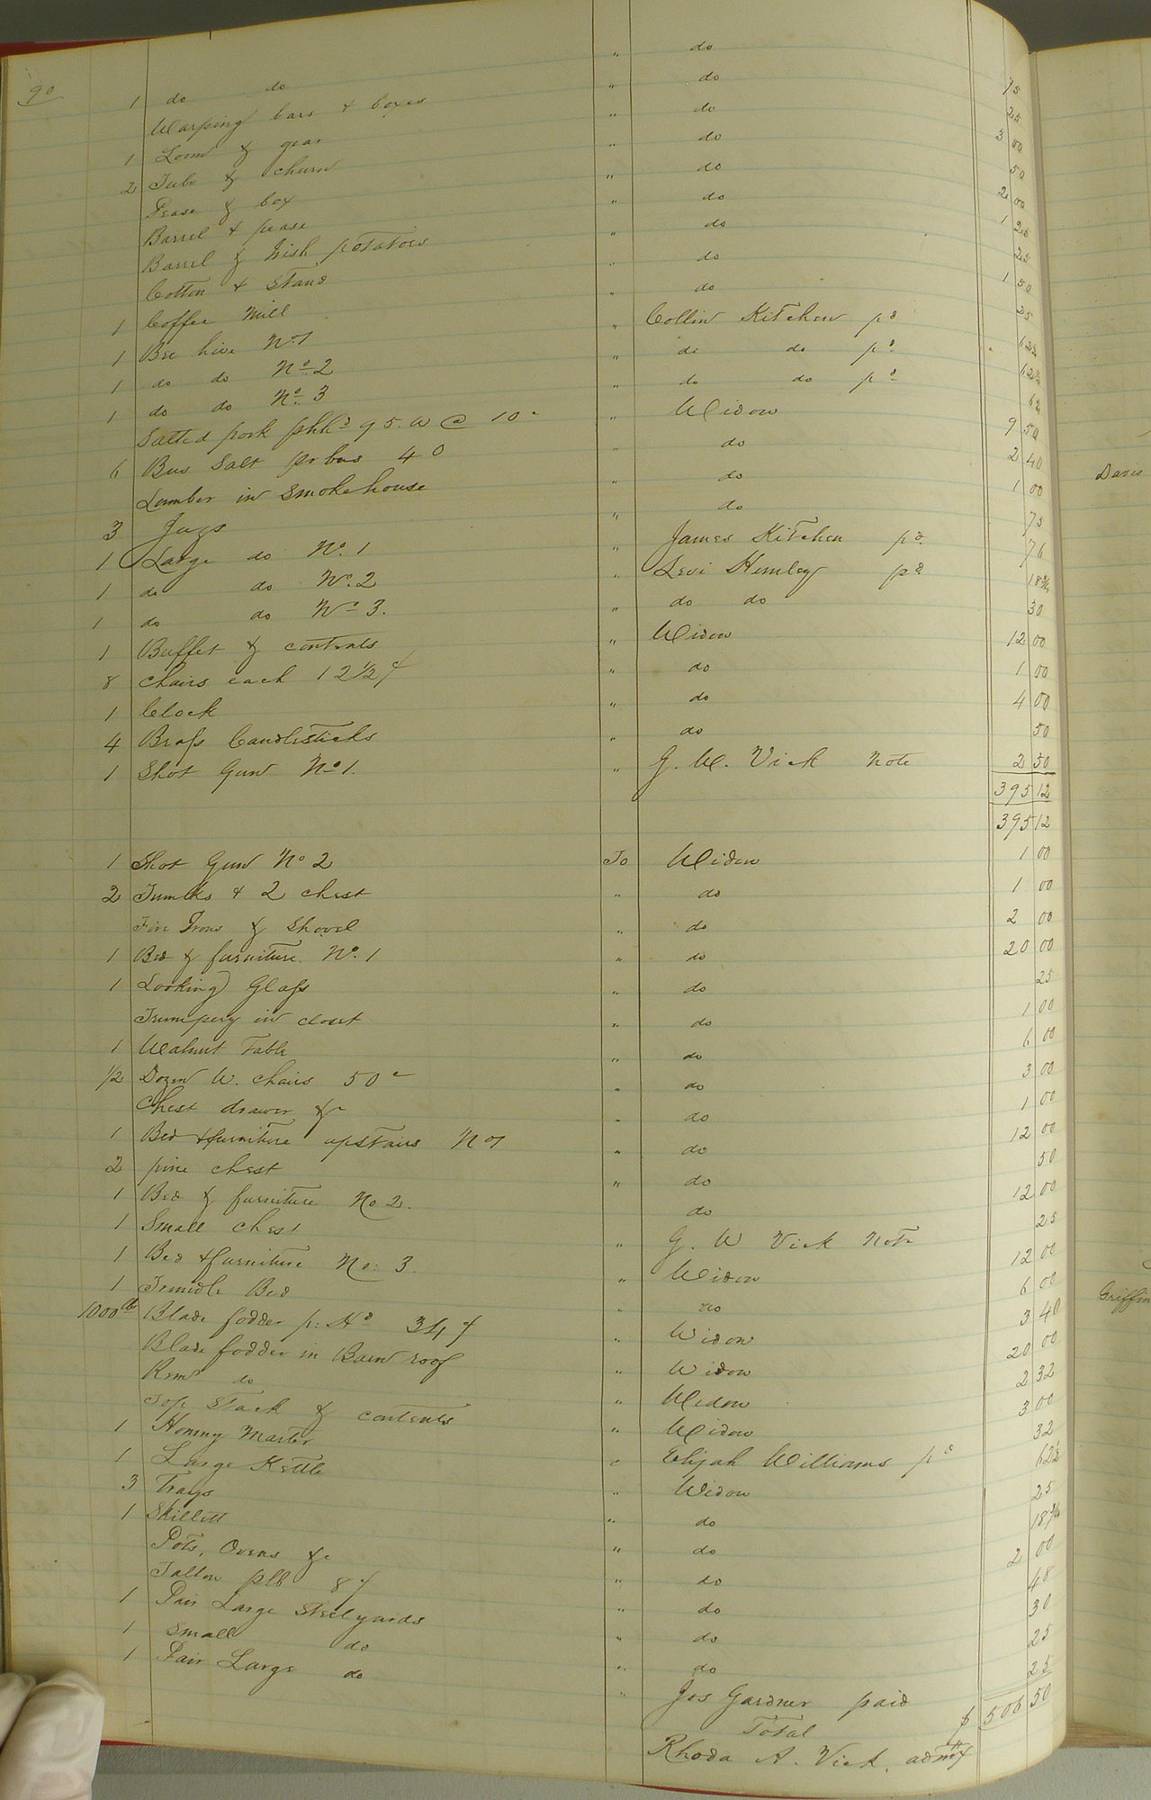 90
1 do do " do 75
Warping bars & boxes " do 25
1 Loom & gear " do 3 00
2 Tubs & churn " do 50
Pease & box " do 2 00
Barrel & pease " do 1 20
Barrel & Irish potatoes " do 25
Cotton & Stand " do 1 50
1 Coffee Mill " do 25
1 Bee hive No 1 " Collin Kitchen pd 62½
1 do do No. 2 " do do pd 62½
1 do do No. 3 " do do pd 62
Salted pork 95 @ 10 " Widow 9 50
6 Bus Salt pr bus 40 " do 2 40
Lumber in Smokehouse " do 1 00
3 Jugs " do 75
1 Large do No. 1 " James Kitchen pd. 76
1 do do No. 2 " Levi pd 18¾
1 do do No 3. " do do 30
1 Buffet & contents " Widow 12 00
8 chairs each 12½ ¢ " do 1 00
1 Clock " do 4 00
4 Brass Candlesticks " do 50
1 Shot Gun No 1. " G. W. Vick Note 2 50
395 12
395 12
1 Shot Gun No 2 To Widow 1 00
2 Trunks & 2 chest " do 1 00
Fire Irons & Shovel " do 2 00
1 Bed & furniture No. 1 " do 20 00
1 Looking Glass " do 25
Trumpery in closet " do 1 00
1 Walnut Table " do 6 00
1/2 Dozen W. chairs 50 " do 3 00
Chest drawer &c " do 1 00
1 Bed & furniture upstairs No 1 " do 12 00
2 pine chest " do 50
1 Bed & furniture No 2. do 12 00
1 Small chest " G. W Vick Note 25
1 Bed & furniture No: 3. " Widow 12 00
1 Trundle Bed " do 6 00
1000 lb Blade fodder p: Hd 34 ¢ " Widow 3 40
Blade fodder in Barn roof " Widow 20 00
do " Widow 2 32
Top Stack & contents " Widow 3 00
1 Hominy Morter " Elijah Williams pd 32
1 Large Kettle " Widow 62½
3 Trays " do 25
1 Skillett " do 18¾
Pots, Ovens &c " do 2 00
Tallow 8 ¢ " do 48
1 Pair Large Steelyards " do 30
1 Small do " do 25
1 Pair Large do " Jos Gardner paid 25
Total $ 506 50
Rhoda A. Vick, admx
Daves
Griffin